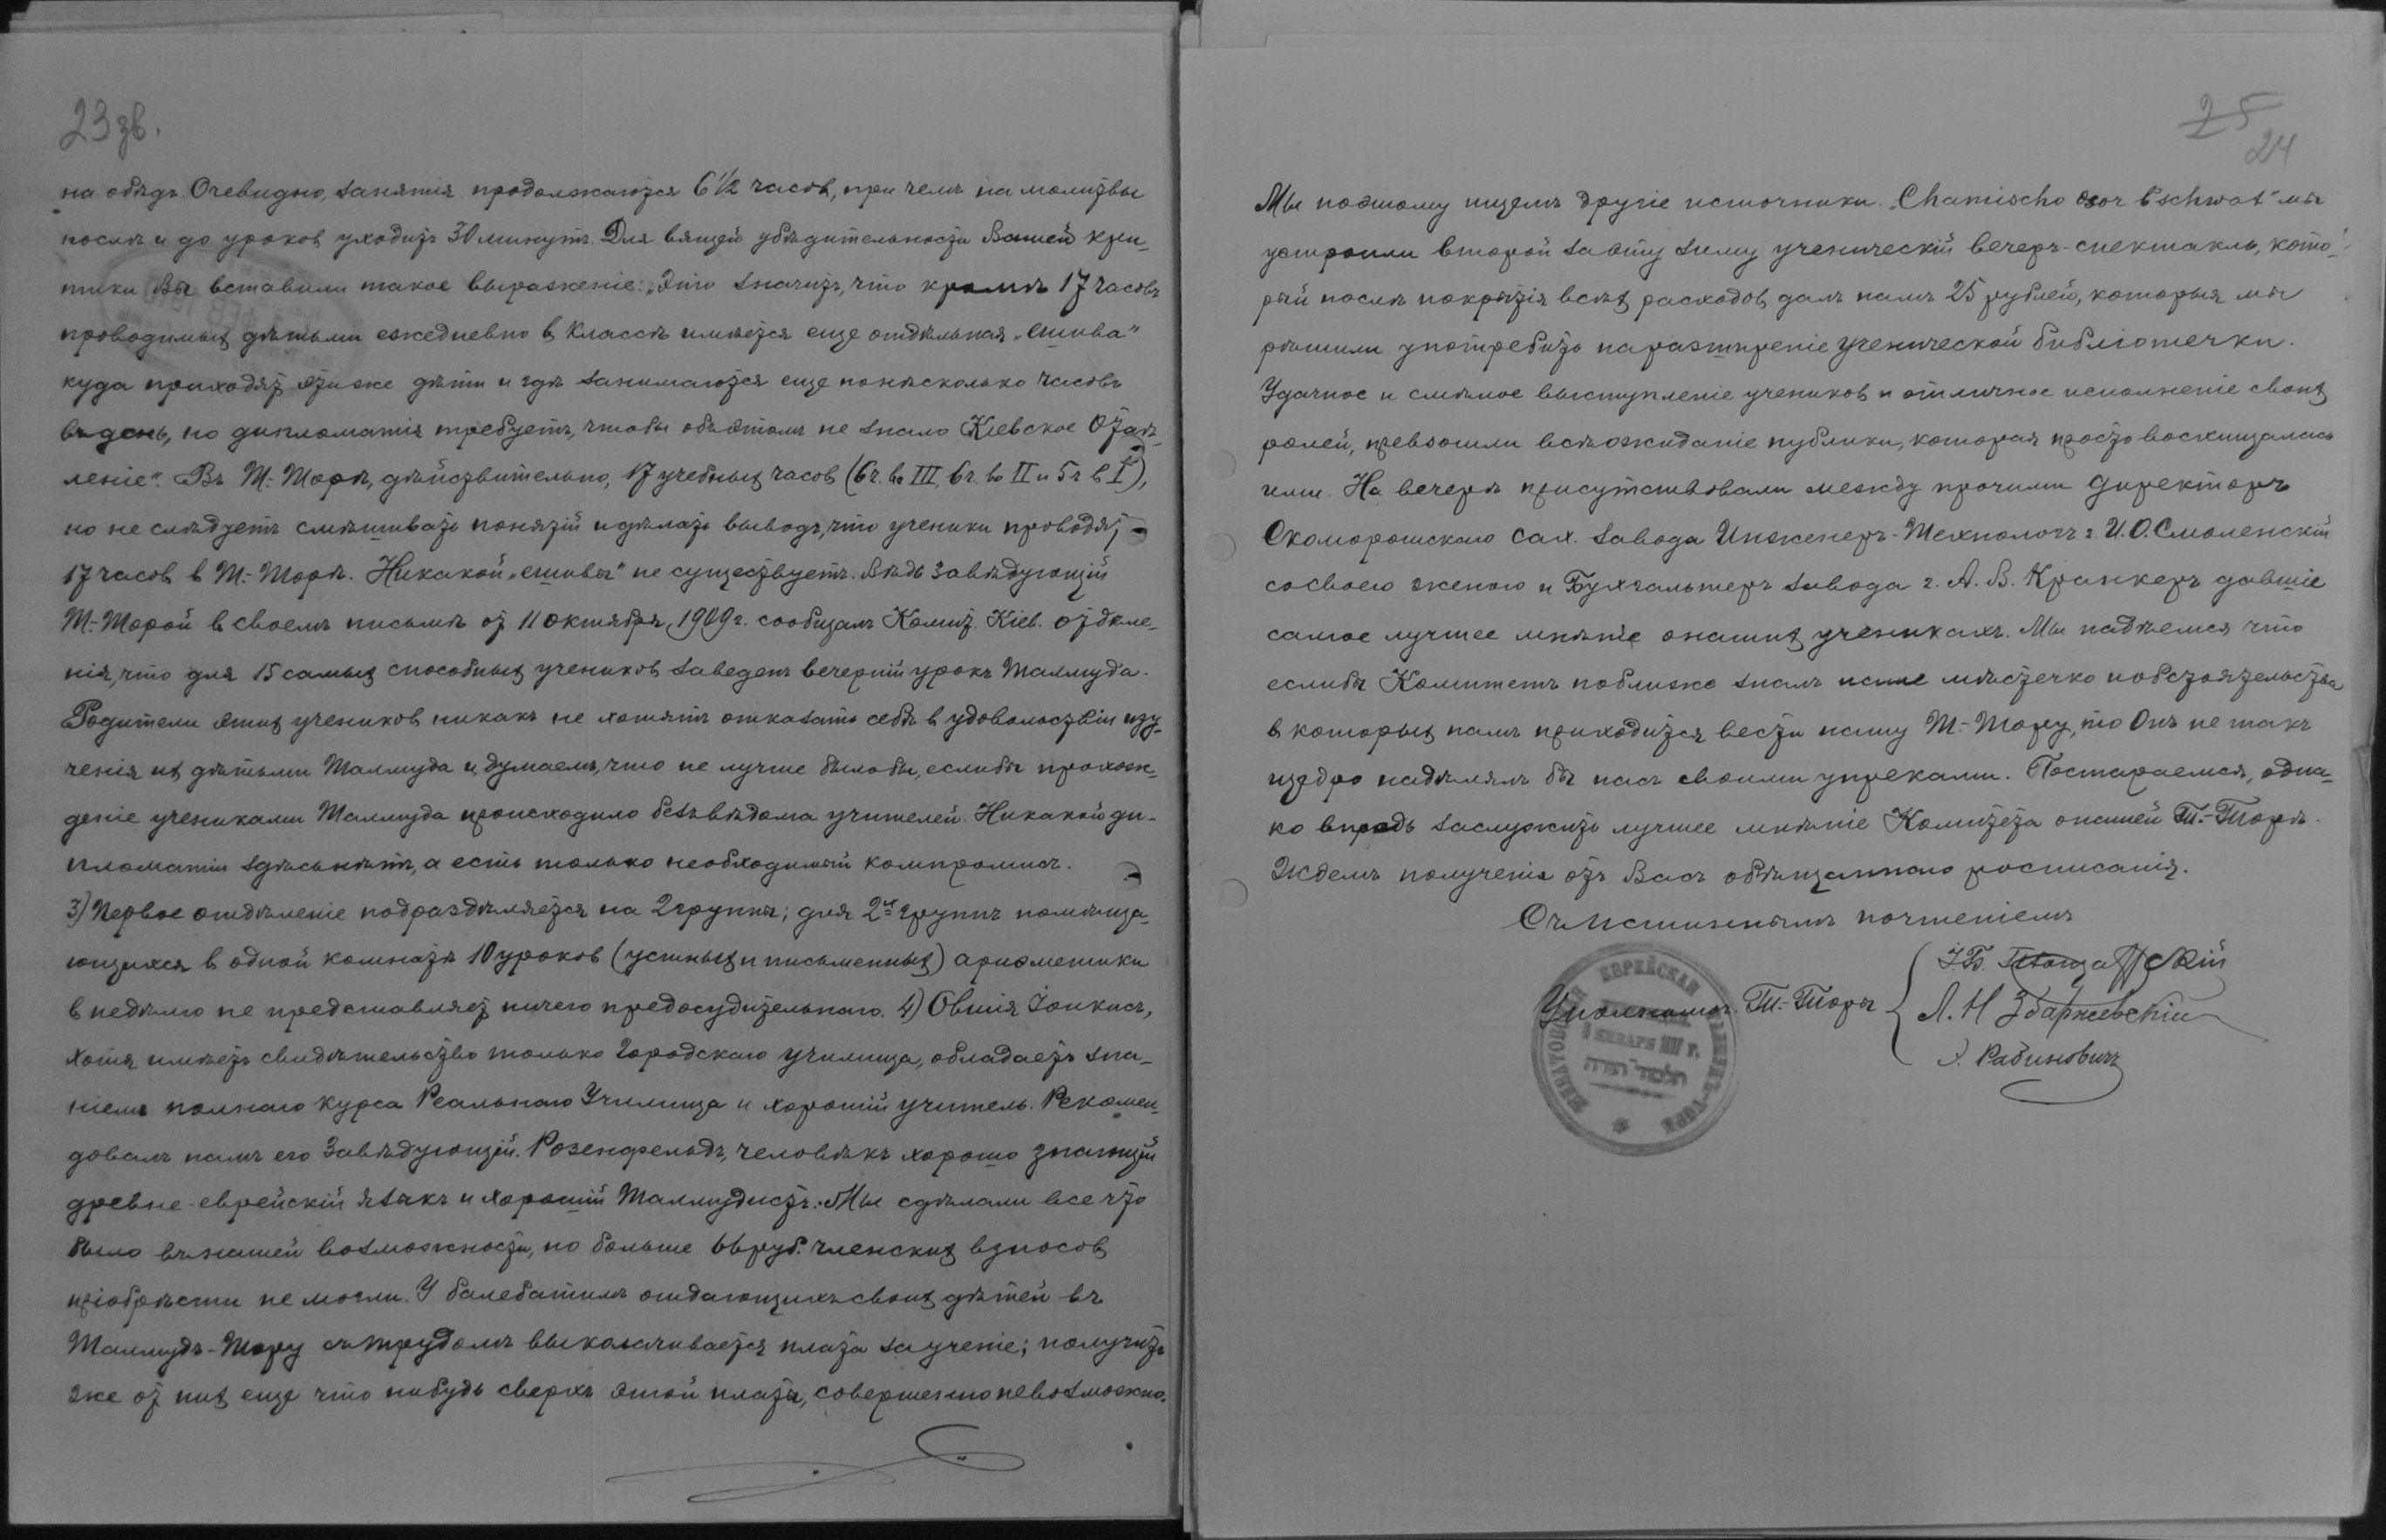 23 зв.
на обѣдъ. Очевидно, занятія продолжаются 6 1/2 часов, при чемъ на молитвы
послѣ и до уроков уходитъ 30 минутъ. Для вящей убѣдительности Вашей кри-
тики Вы вставили такое выраженіе: „Это значитъ, что кромѣ 17 часовъ
проводимых дѣтьми ежедневно в классѣ имѣется еще отдѣльная „ешива"
куда приходят этиже дѣти и гдѣ занимаются еще понѣсколько часовъ
въ день, но дипломатія требуетъ, чтобы объэтомъ не знало Кіевское Отдѣ-
леніе". Въ Т.-Торѣ, дѣйствительно, 17 учебных часов (6 ч. во III, 6 ч. во II и 5 ч в I),
но не слѣдуетъ смѣшивать понятій и дѣлать выводъ, что ученики проводят
17 часов в Т.-Торѣ. Никакой „ешивы" не существуетъ. Вѣдь Завѣдующій
Т.-Торой в своемъ письмѣ от 11 октября, 1909 г. сообщалъ Комит. Кіев. отдѣле-
нія, что для 15 самых способных учеников заведенъ вечерній урокъ Талмуда.
Родители этих учеников никакъ не хотятъ отказать себѣ в удовольствіи изу-
ченія их дѣтьми Талмуда и, думаемъ, что не лучше былобы, еслибы прохож-
деніе учениками Талмуда происходило безъ вѣдома учителей. Никакой ди-
пломатіи здѣсь нѣтъ, а есть только необходимый компромисъ.
3) Первое отдѣленіе подраздѣляется на 2 группы; для 2й группы помѣща-
ющихся в одной комнатѣ 10 уроков (устных и письменных) ариѳметики
в недѣлю не представляет ничего предосудительнаго. 4) Овшія Іонкисъ,
хотя имѣетъ свидѣтельство только Городскаго училища, обладаетъ зна-
ніемъ полнаго курса Реальнаго Училища и хорошій учитель. Рекомен-
довалъ намъ его Завѣдующій. Розенфельдъ, человѣкъ хорошо знающій
древне-еврейскій языкъ и хорошій Талмудистъ. Мы сдѣлали все что
было въ нашей возможности, но больше 66 руб. членских взносов
пріобрѣсти не могли. У балебатимъ отдающихъ своих дѣтей въ
Талмудъ-Тору съ трудомъ выколачивается плата за ученіе; получить
же от них еще что нибудь сверхъ этой платы, совершенно невозможно.
25
24
Мы поэтому ищемъ другіе источники. „Chamischo osor b'schwat" мы
устроили второй заэту зиму ученическій вечеръ-спектакль, кото-
рый послѣ покрытія всѣх расходов, далъ намъ 25 рублей, которыя мы
рѣшили употребить на разширеніе ученической библіотечки.
Удачное и смѣлое выступленіе учеников и отличное исполненіе своих
ролей, превзошли всѣ ожиданіе публики, которая просто восхищалась
ими. На вечерѣ присутствовали между прочими директоръ
Скоморошскаго сах. завода Инженеръ-Технологъ г. И. О. Смоленскій
сосвоею женою и Бухгальтеръ завода г. А. В. Кранкеръ давшіе
самое лучшее мнѣніе онаших ученикахъ. Мы надѣемся что
еслибы Комитетъ поближе зналъ наше мѣстечко и обстоятельства
в которых намъ приходится вести нашу Т.-Тору, то Онъ не такъ
щедро надѣлялъ бы насъ своими упреками. Постараемся, одна-
ко впредь заслужить лучшее мнѣніе Комитета онашей Т.-Торѣ.
Ждемъ полученія отъ Васъ обѣщаннаго росписанія.
Съ Истиннымъ почтеніемъ
Уполномоч. Т.-Торы
Л. Н Збаржевскій
Рабиновичъ
ЕВРЕЙСКАЯ ТАЛМУДЪ-ТОРА
תלמוד תורה